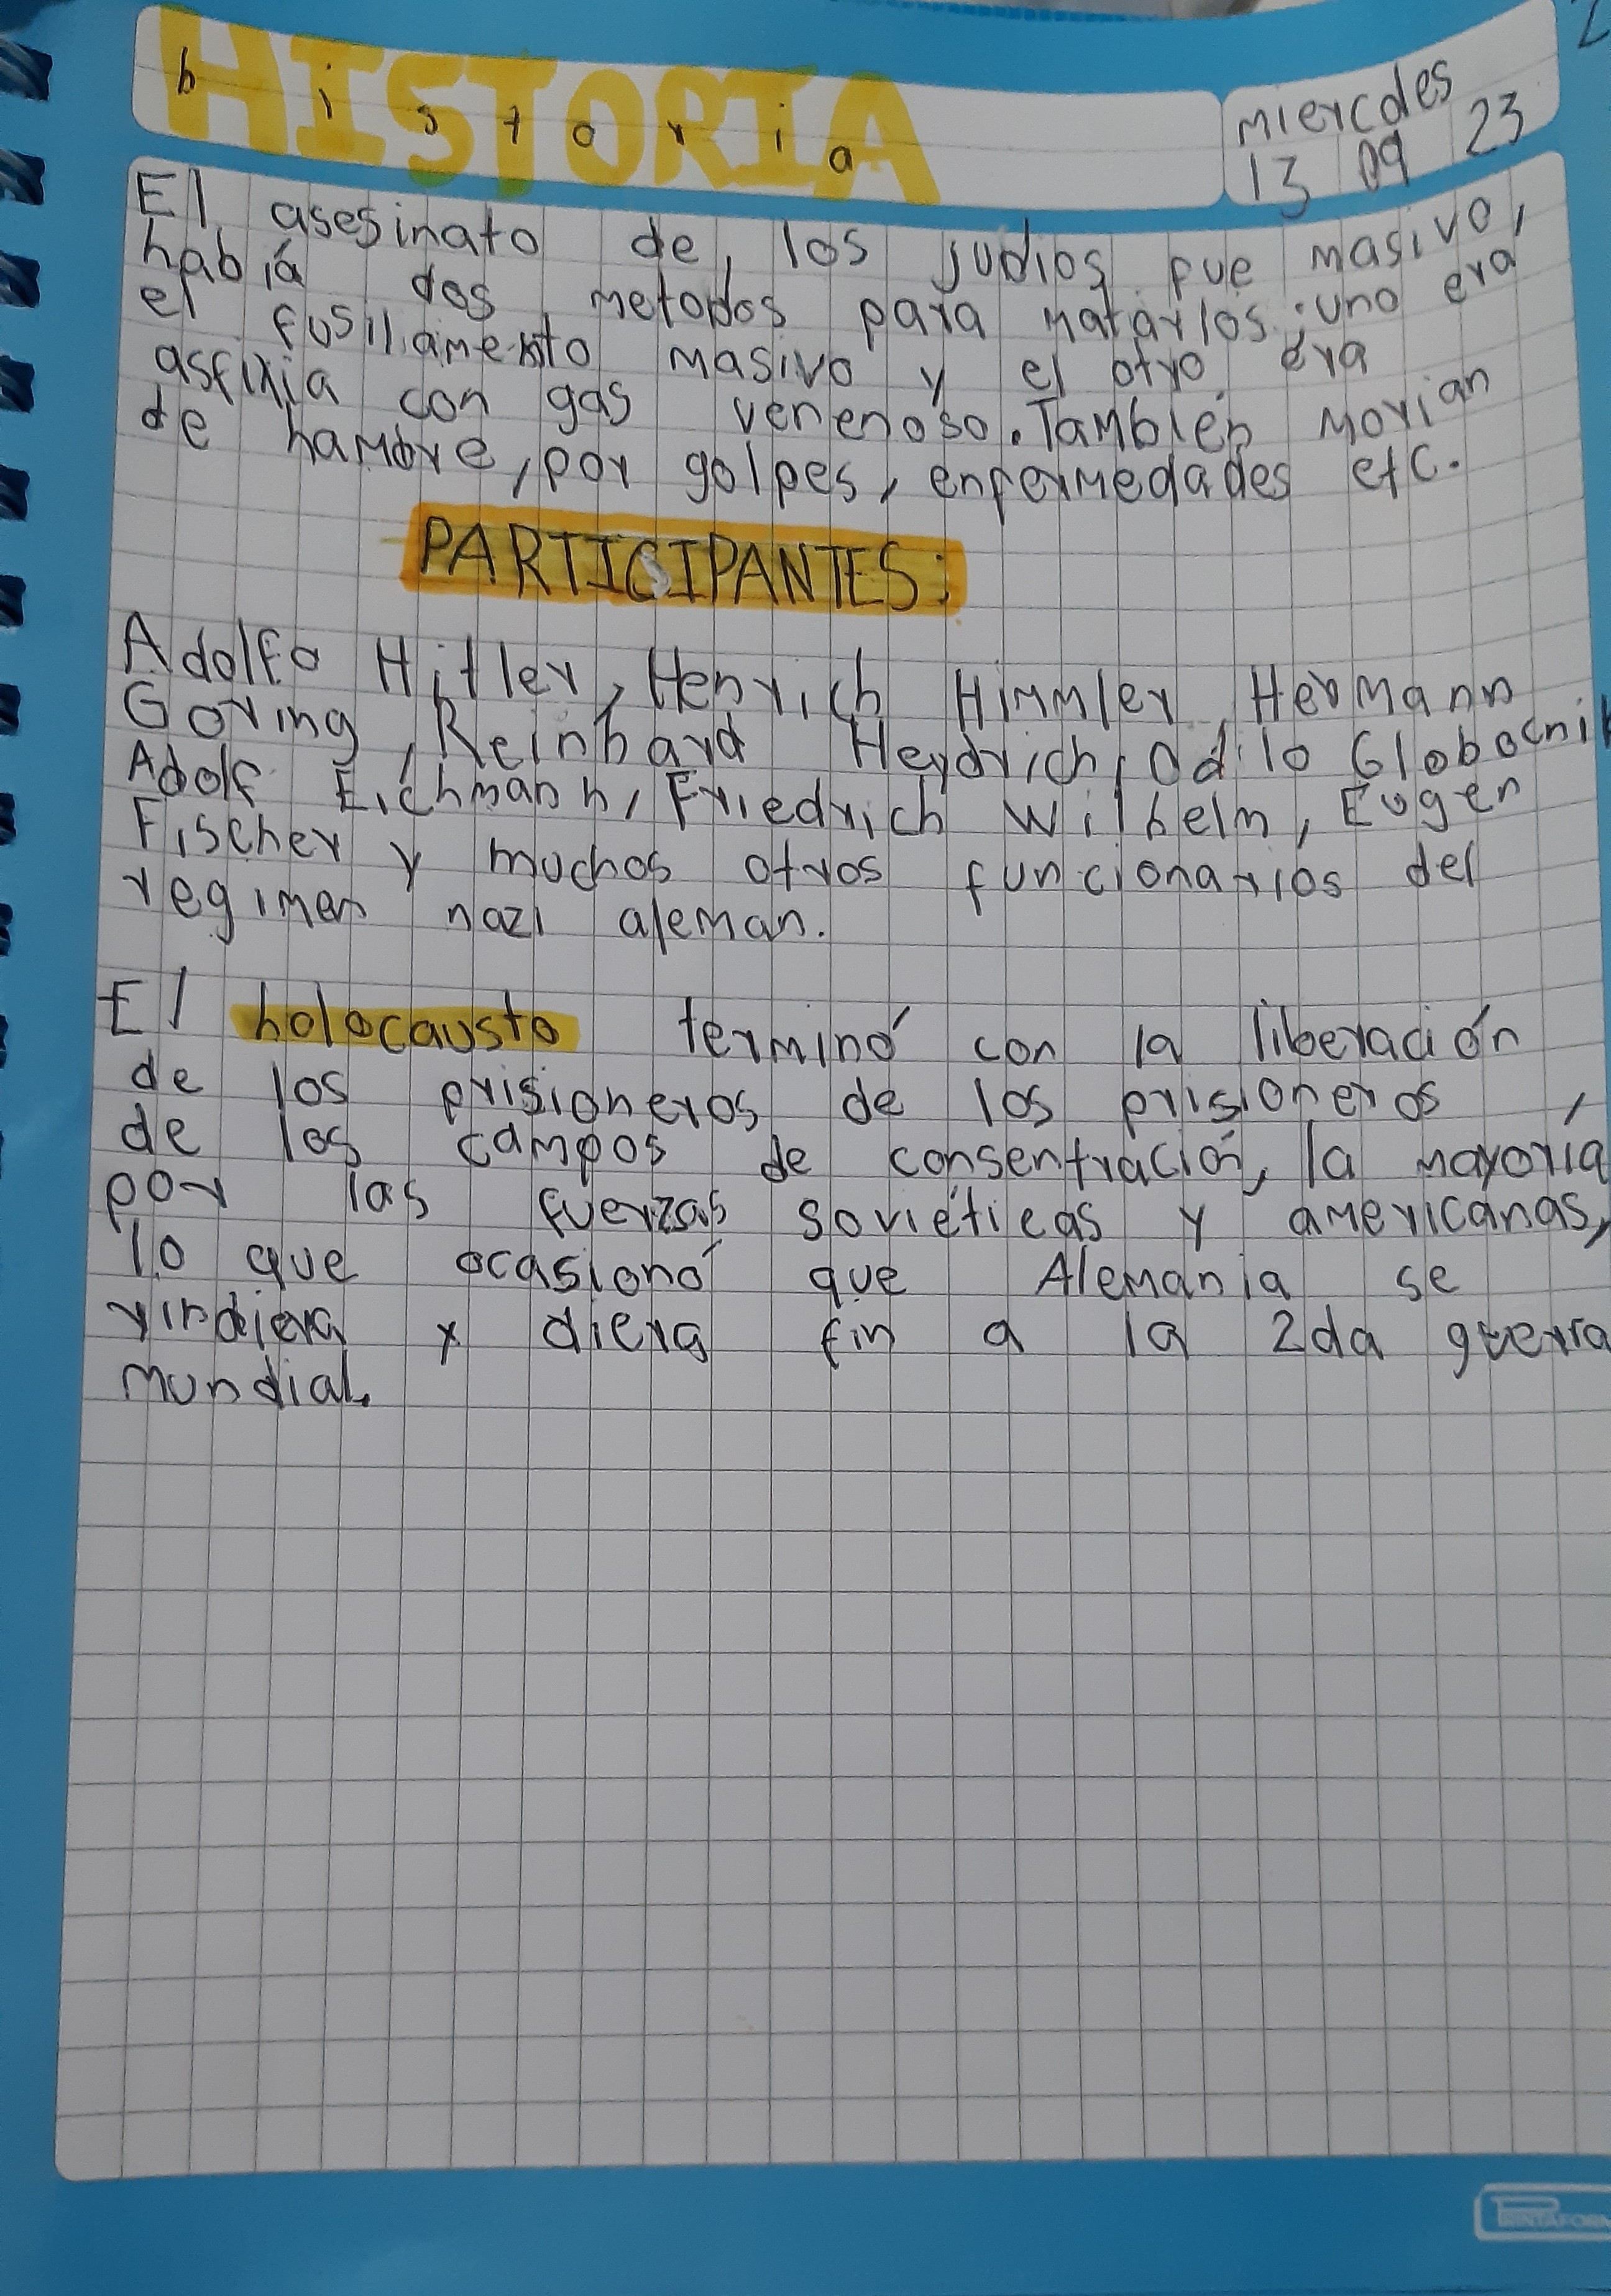 HISTORIA
historia
miercoles
13 09 23
El asesinato de los judios fue masivo,
había dos metodos para matarlos; uno era
el fusilamiento masivo y el otro era
asfixia con gas venenoso. Tambien morian
de hambre, por golpes, enfermedades etc.
PARTICIPANTES:
Adolfo Hitler, Henrich Himmler, Hermann
Goring, Reinhard Heydrich, Odilo Globocnik
Adolf Eichmann, Friedrich Wilhelm, Eugen
Fischer y muchos otros funcionarios del
regimen nazi aleman.
El holocausto terminó con la liberación
de los prisioneros de los prisioneros
de los campos de consentración, la mayoría
por las fuerzas soviéticas y americanas,
lo que ocasionó que Alemania se
rindiera y diera fin a la 2da guerra
mundial.